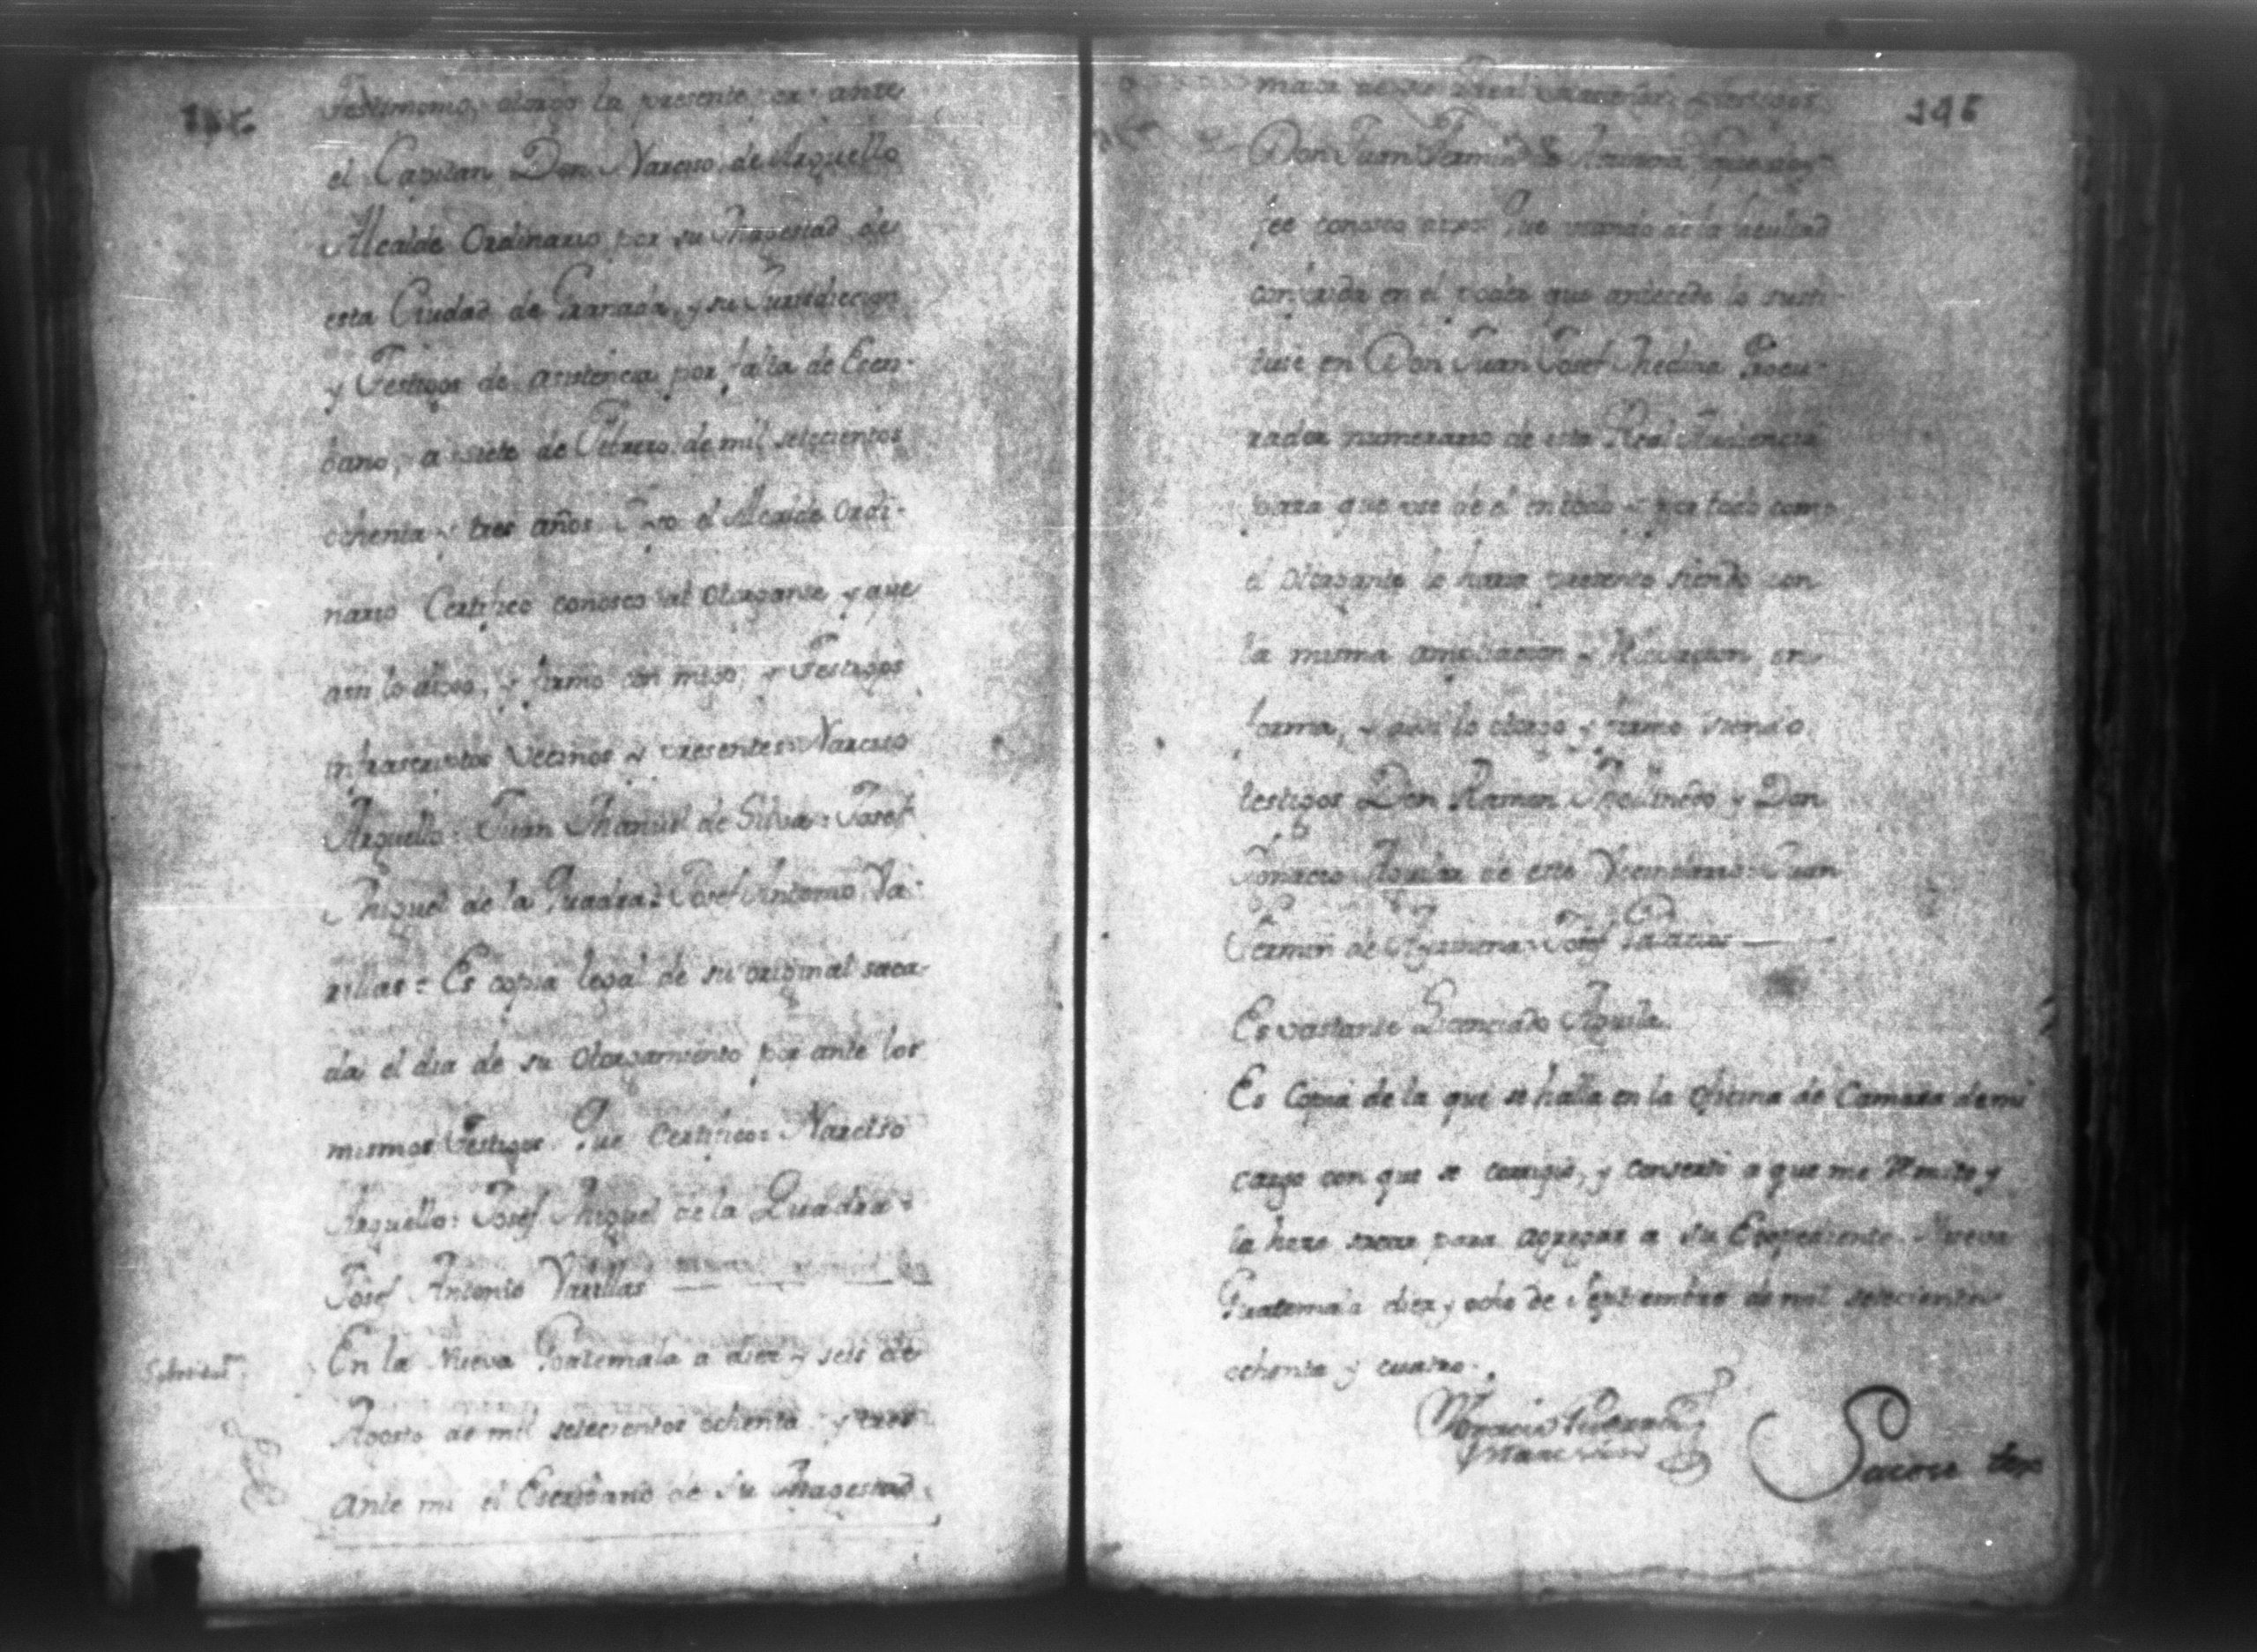 testimonio, otorgo la presente por ante
el Capitan Don Narciso de Arguello
Alcalde Ordinario por su Magestad de
esta Ciudad de Granada, y su Jurisdiccion
y Testigos de asistencia por falta de Escri-
bano, a siete de Febrero de mil setecientos
ochenta y tres años. Y yo el Alcalde Ordi-
nario Certifico conosco al Otorgante y que
asi lo dixo, y firmo con migo, y Testigos
infrascriptos Vecinos y presentes: Narciso
Arguello: Juan Manuel de Silva: Josef
Miguel de la Quadra: Josef Antonio Va-
rillas: Es copia legal de su original saca-
da el dia de su Otorgamiento por ante los
mismos Testigos. Que Certifico: Narciso
Arguello: Josef Miguel de la Quadra:
Josef Antonio Varillas
En la Nueva Guatemala a diez y seis de
Agosto de mil setecientos ochenta y tres
ante mi el Escribano de Su Magestad
195
Don Juan Fermin de que doy
fee conosco dixo: Que usando de la facultad
conferida en el poder que antecede lo susti-
tuie en Don Juan Josef Medina Procu-
rador numerario de esta Real Audiencia
para que use de el en todo y por todo como
el Otorgante lo haria presente siendo con
la misma ampliacion y Relevacion en
forma, y asi lo otorgo y firmo siendo
testigos Don Ramon Molinero y Don
Ignacio Aguilar de este Vecindario: Juan
Fermin de Josef Palacios
Es vastante Licenciado Aguila.
Es Copia de la que se halla en la Oficina de Camara de mi
cargo con que se corrigio, y concerto a que me Remito y
la hize sacar para agregar a su Expediente. Nueva
Guatemala diez y ocho de Septiembre de mil setecientos
ochenta y cuatro.
Ignacio